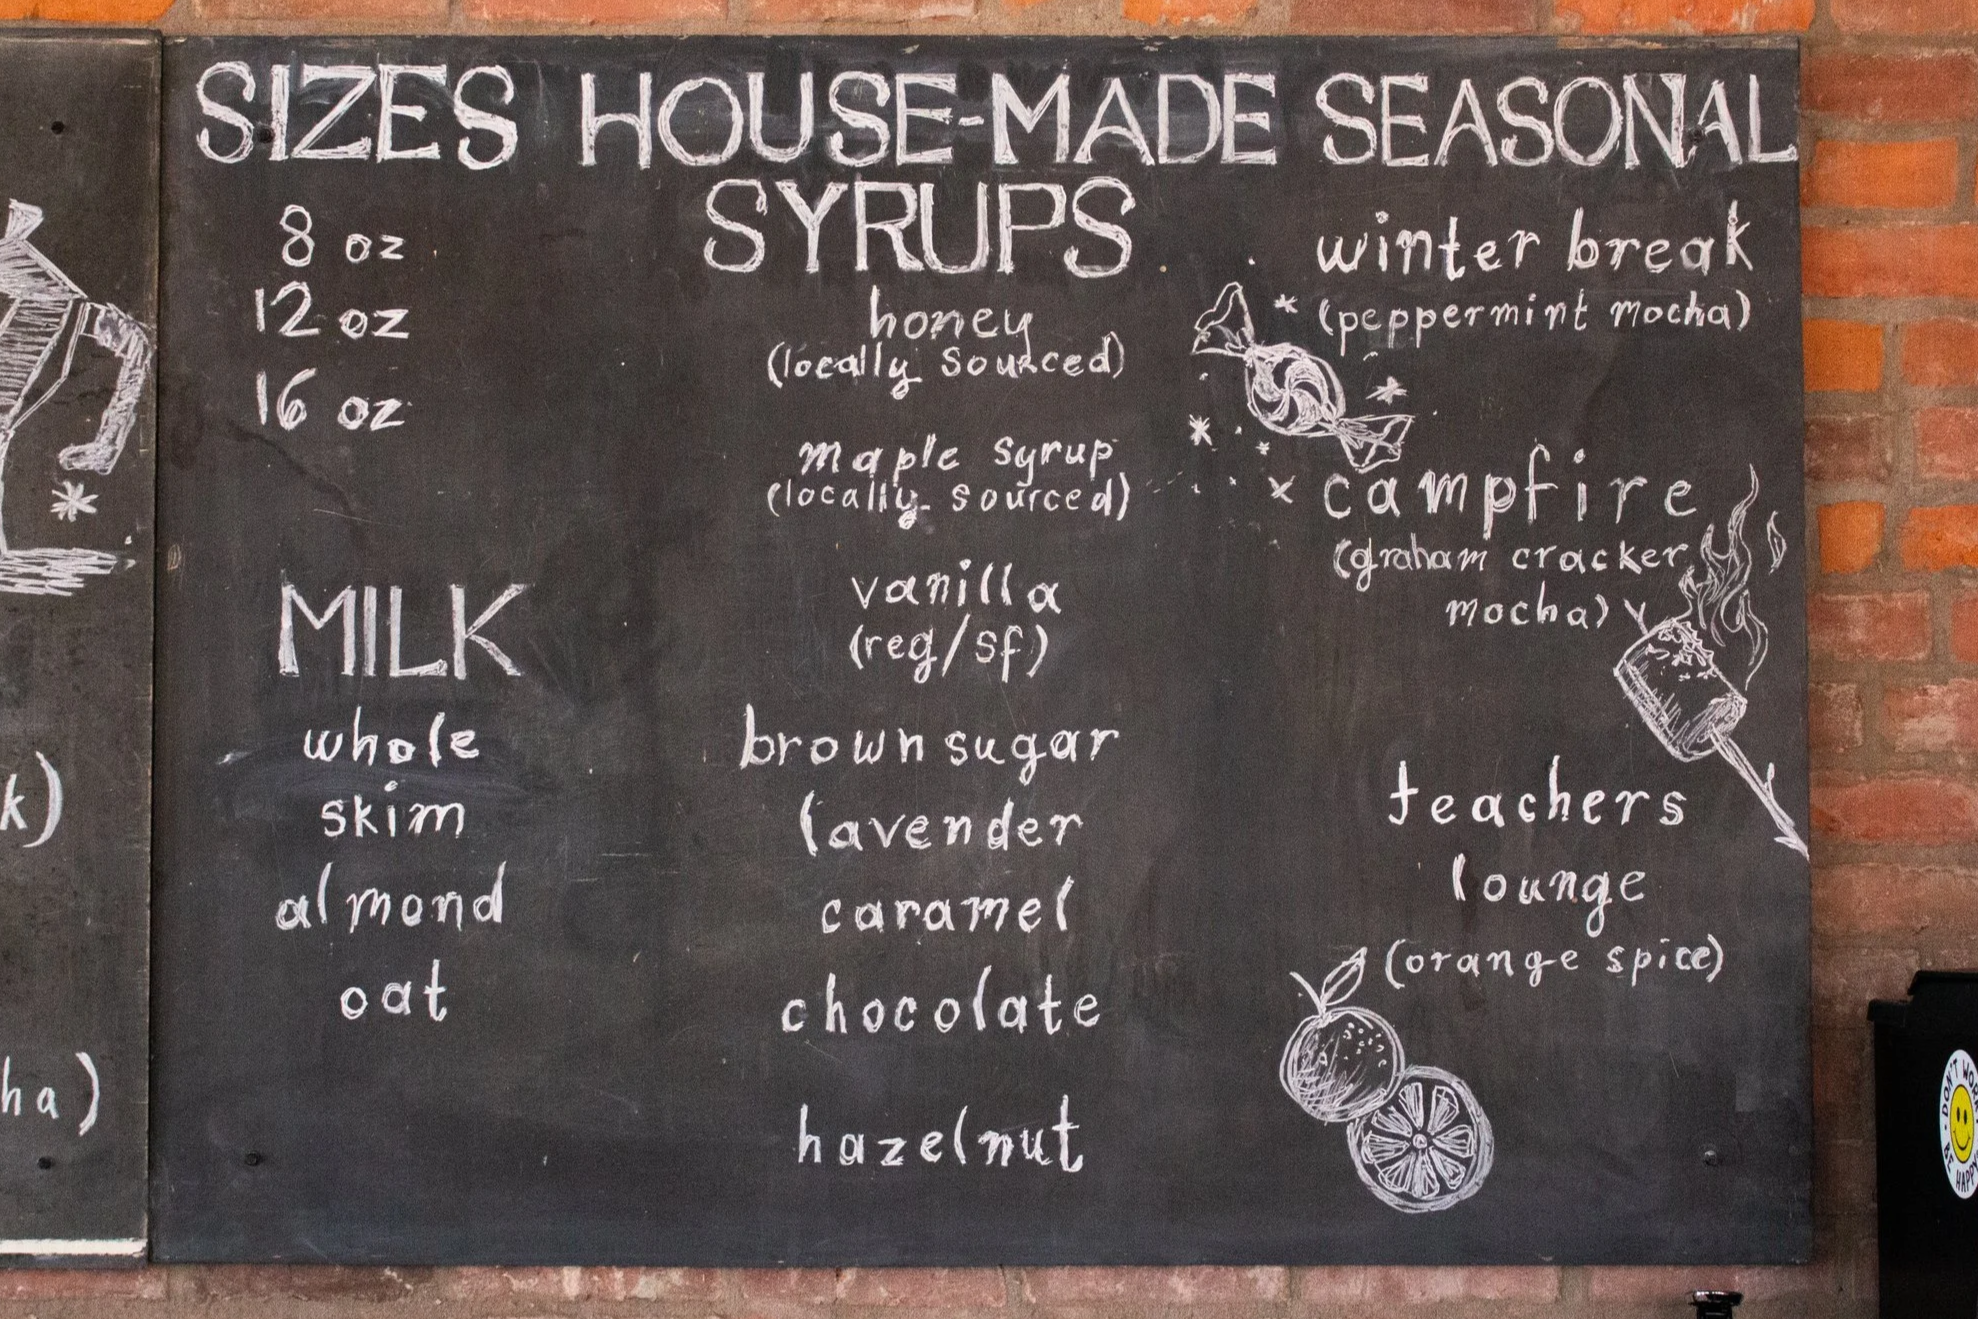 SIZES
8 oz
12 oz
16 oz
MILK
whole
skim
almond
oat
HOUSE-MADE
SYRUPS
honey
(locally sourced)
maple syrup
(locally sourced)
vanilla
(reg/sf)
brown sugar
lavender
caramel
chocolate
hazelnut
SEASONAL
winter break
(peppermint mocha)
campfire
(graham cracker
mocha)
teachers
lounge
(orange spice)
k)
ha)
DON'T WORRY
BE HAPPY